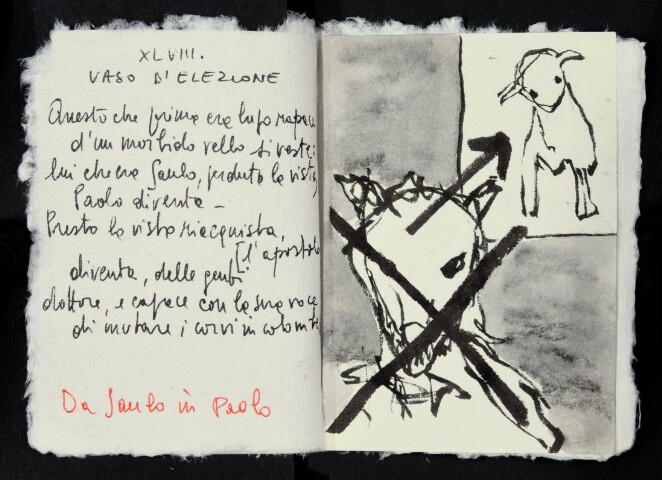 XLVIII.
VASO D'ELEZIONE
Questo che prima era lupo rapace
d'un morbido vello si veste:
lui che era Saulo, perduta la vista,
Paolo diventa –
Presto la vista riacquista,
[l'apostolo
diventa, delle genti
dottore, e capace con la sua voce
di mutare i corvi in colombe
Da Saulo in Paolo